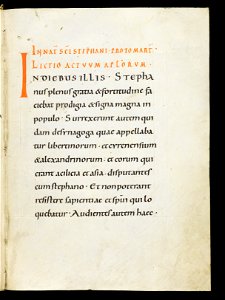 IN NAT SCI STEPHANI PROTOMART
LECTIO ACTUUM APLORUM
IN DIEBUS ILLIS · Stepha
nus plenus gratia & fortitudine fa
ciebat prodigia & signa magna in
populo · Surrexerunt autem qui
dam de synagoga quae appellaba
tur libertinorum · et cyrenensium
& alexandrinorum · et eorum qui
erant a cilicia et asia · disputantes
cum stephano · Et non poterant
resistere sapientiae et spui qui lo
quebatur · Audientes autem haec ·